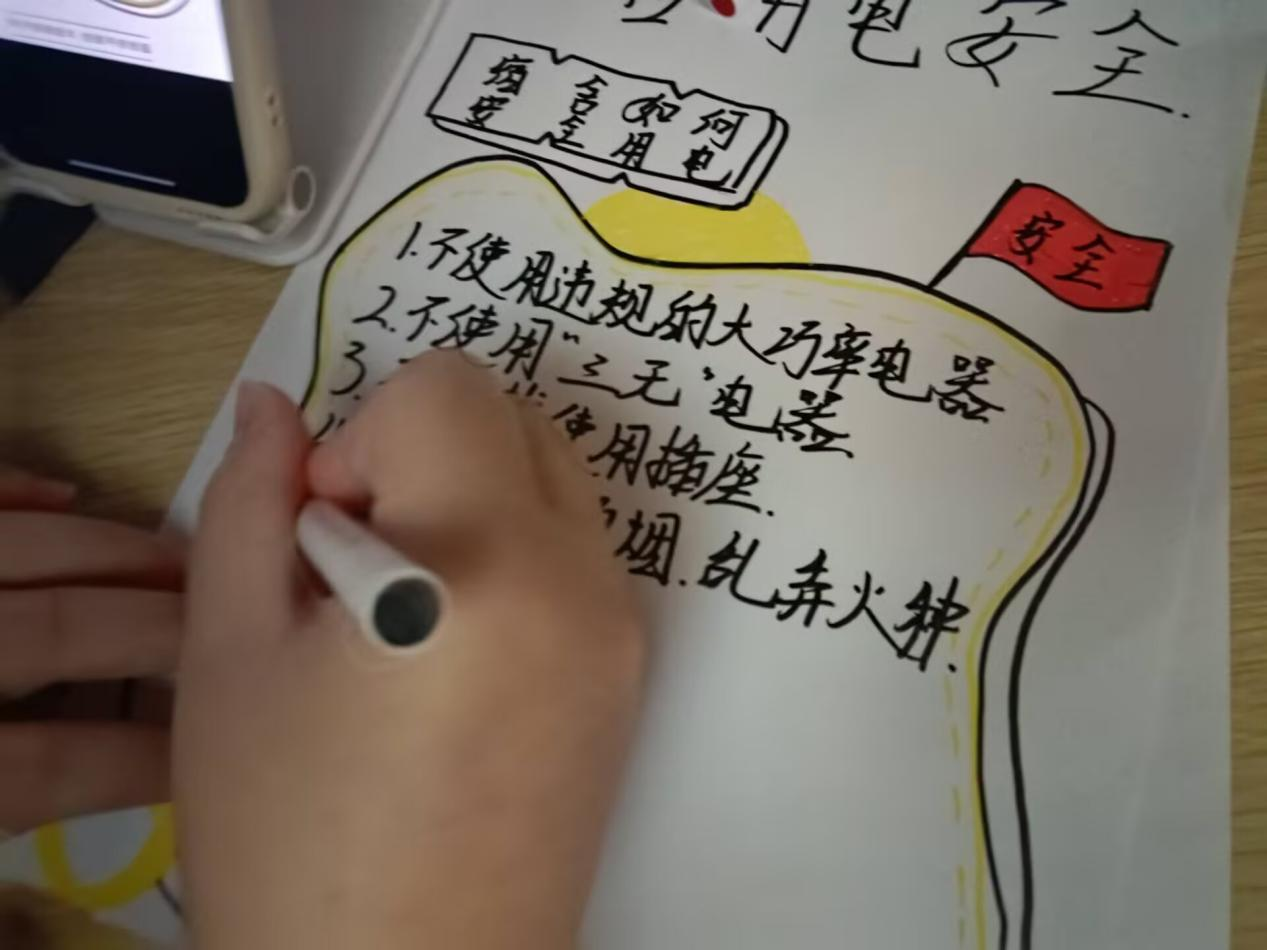 用电安全.
宿舍如何
安全用电
安全
1.不使用违规的大巧率电器
2.不使用“三无”电器
3.
使用插座.
烟.乱弃火种.